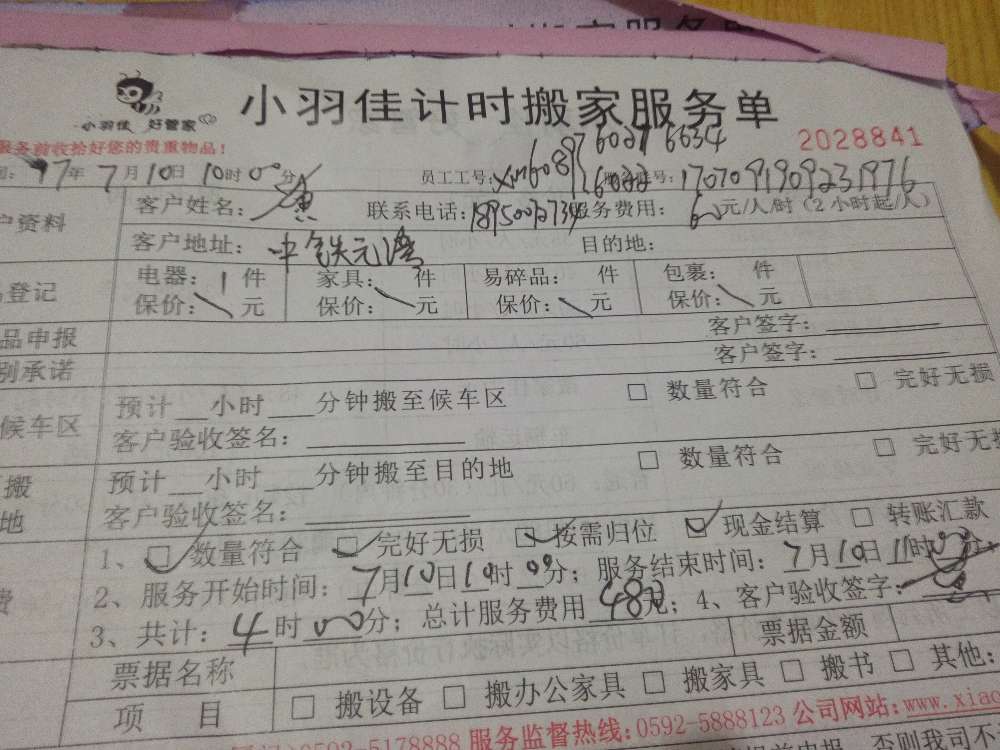 小羽佳 好管家
小羽佳计时搬家服务单
2028841
服务前收拾好您的贵重物品!
17年7月10日10时00分
员工工号:
60276634
1707091909231976
客户资料
客户姓名:黄
联系电话:
服务费用:60元/人/时(2小时起/人)
客户地址:中铁元湾
目的地:
登记
电器:1件 家具: 件 易碎品: 件 包裹: 件
保价:\元 保价:\元 保价:\元 保价:\元
品申报
客户签字:
别承诺
客户签字:
候车区
预计 小时 分钟搬至候车区 □ 数量符合 □ 完好无损
客户验收签名:
搬
地
预计 小时 分钟搬至目的地 □ 数量符合 □ 完好无损
客户验收签名:
费
1、☑数量符合 ☑完好无损 ☑按需归位 ☑现金结算 □ 转账汇款
2、服务开始时间:7月10日10时00分;服务结束时间:7月10日11时00分;
3、共计:4时00分;总计服务费用48元;4、客户验收签字:
票据名称
票据金额
项 目
□ 搬设备 □ 搬办公家具 □ 搬家具 □ 搬书 □ 其他:
0592-5178888 服务监督热线:0592-5888123 公司网站:www.xiao
否则我司不